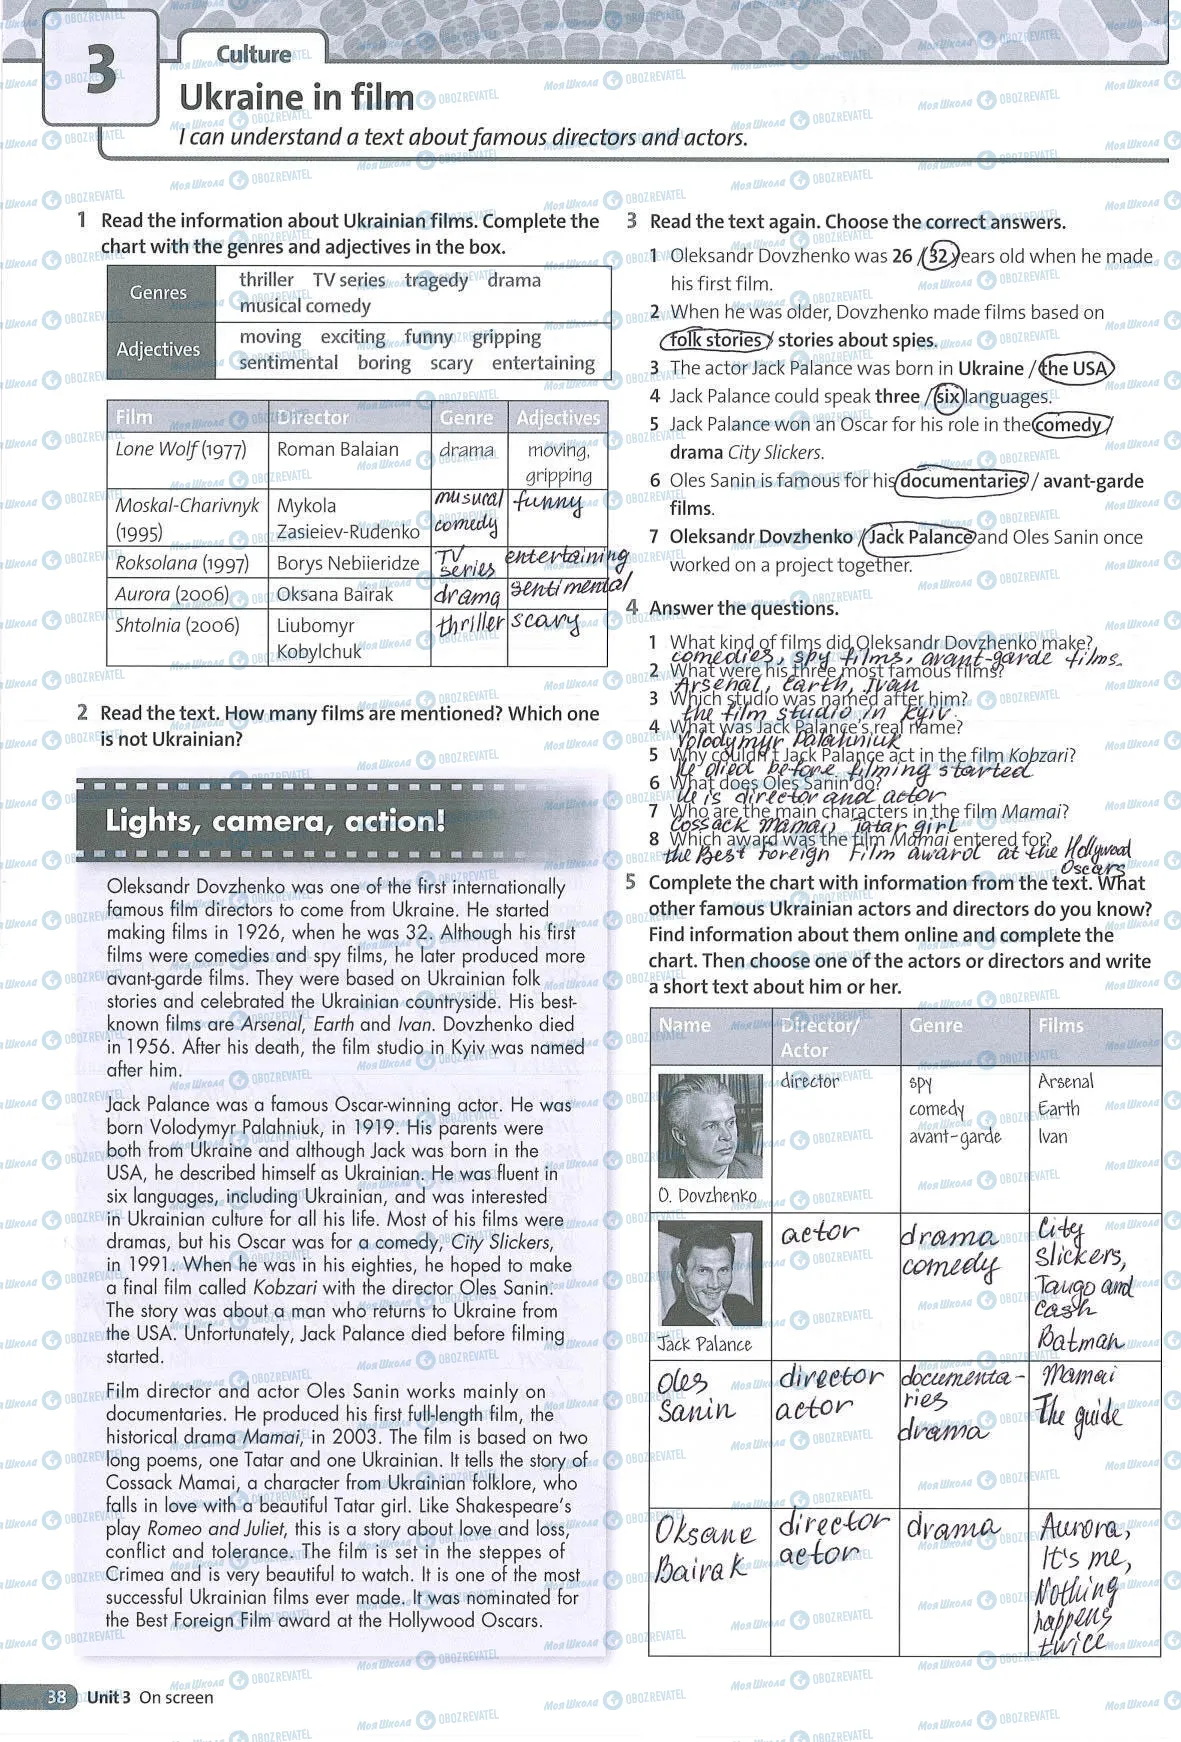 3
Culture
Ukraine in film
I can understand a text about famous directors and actors.
1 Read the information about Ukrainian films. Complete the
chart with the genres and adjectives in the box.
Genres
thriller TV series tragedy drama
musical comedy
Adjectives
moving exciting funny gripping
sentimental boring scary entertaining
Film Director Genre Adjectives
Lone Wolf (1977) Roman Balaian drama moving,
gripping
Moskal-Charivnyk Mykola musural funny
(1995) Zasieiev-Rudenko comedy
Roksolana (1997) Borys Nebiieridze TV series entertaining
Aurora (2006) Oksana Bairak drama sentimental
Shtolnia (2006) Liubomyr thriller scary
Kobylchuk
2 Read the text. How many films are mentioned? Which one
is not Ukrainian?
Lights, camera, action!
Oleksandr Dovzhenko was one of the first internationally
famous film directors to come from Ukraine. He started
making films in 1926, when he was 32. Although his first
films were comedies and spy films, he later produced more
avant-garde films. They were based on Ukrainian folk
stories and celebrated the Ukrainian countryside. His best-
known films are Arsenal, Earth and Ivan. Dovzhenko died
in 1956. After his death, the film studio in Kyiv was named
after him.
Jack Palance was a famous Oscar-winning actor. He was
born Volodymyr Palahniuk, in 1919. His parents were
both from Ukraine and although Jack was born in the
USA, he described himself as Ukrainian. He was fluent in
six languages, including Ukrainian, and was interested
in Ukrainian culture for all his life. Most of his films were
dramas, but his Oscar was for a comedy, City Slickers,
in 1991. When he was in his eighties, he hoped to make
a final film called Kobzari with the director Oles Sanin.
The story was about a man who returns to Ukraine from
the USA. Unfortunately, Jack Palance died before filming
started.
Film director and actor Oles Sanin works mainly on
documentaries. He produced his first full-length film, the
historical drama Mamai, in 2003. The film is based on two
long poems, one Tatar and one Ukrainian. It tells the story of
Cossack Mamai, a character from Ukrainian folklore, who
falls in love with a beautiful Tatar girl. Like Shakespeare's
play Romeo and Juliet, this is a story about love and loss,
conflict and tolerance. The film is set in the steppes of
Crimea and is very beautiful to watch. It is one of the most
successful Ukrainian films ever made. It was nominated for
the Best Foreign Film award at the Hollywood Oscars.
3 Read the text again. Choose the correct answers.
1 Oleksandr Dovzhenko was 26 / 32 years old when he made
his first film.
2 When he was older, Dovzhenko made films based on
folk stories / stories about spies.
3 The actor Jack Palance was born in Ukraine / the USA
4 Jack Palance could speak three / six languages.
5 Jack Palance won an Oscar for his role in the comedy /
drama City Slickers.
6 Oles Sanin is famous for his documentaries / avant-garde
films.
7 Oleksandr Dovzhenko / Jack Palance and Oles Sanin once
worked on a project together.
4 Answer the questions.
1 What kind of films did Oleksandr Dovzhenko make?
comedies, spy films, avant-garde films.
2 What were his three most famous films?
Arsenal, Earth, Ivan
3 Which studio was named after him?
the film studio in Kyiv.
4 What was Jack Palance's real name?
Volodymyr Palahniuk
5 Why couldn't Jack Palance act in the film Kobzari?
He died before filming started
6 What does Oles Sanin do?
He is director and actor
7 Who are the main characters in the film Mamai?
Cossack Mamai, Tatar girl
8 Which award was the film Mamai entered for?
the Best Foreign Film award at the Hollywood
Oscars
5 Complete the chart with information from the text. What
other famous Ukrainian actors and directors do you know?
Find information about them online and complete the
chart. Then choose one of the actors or directors and write
a short text about him or her.
Name Director/ Genre Films
Actor
director spy Arsenal
comedy Earth
avant-garde Ivan
O. Dovzhenko
actor drama City
comedy slickers,
Tango and
Cash
Batman
Jack Palance
Oles director documenta- Mamai
Sanin actor ries The guide
drama
Oksane director drama Aurora,
Bairak actor It's me,
Nothing
happens
twice
38 Unit 3 On screen
Моя Школа OBOZREVATEL